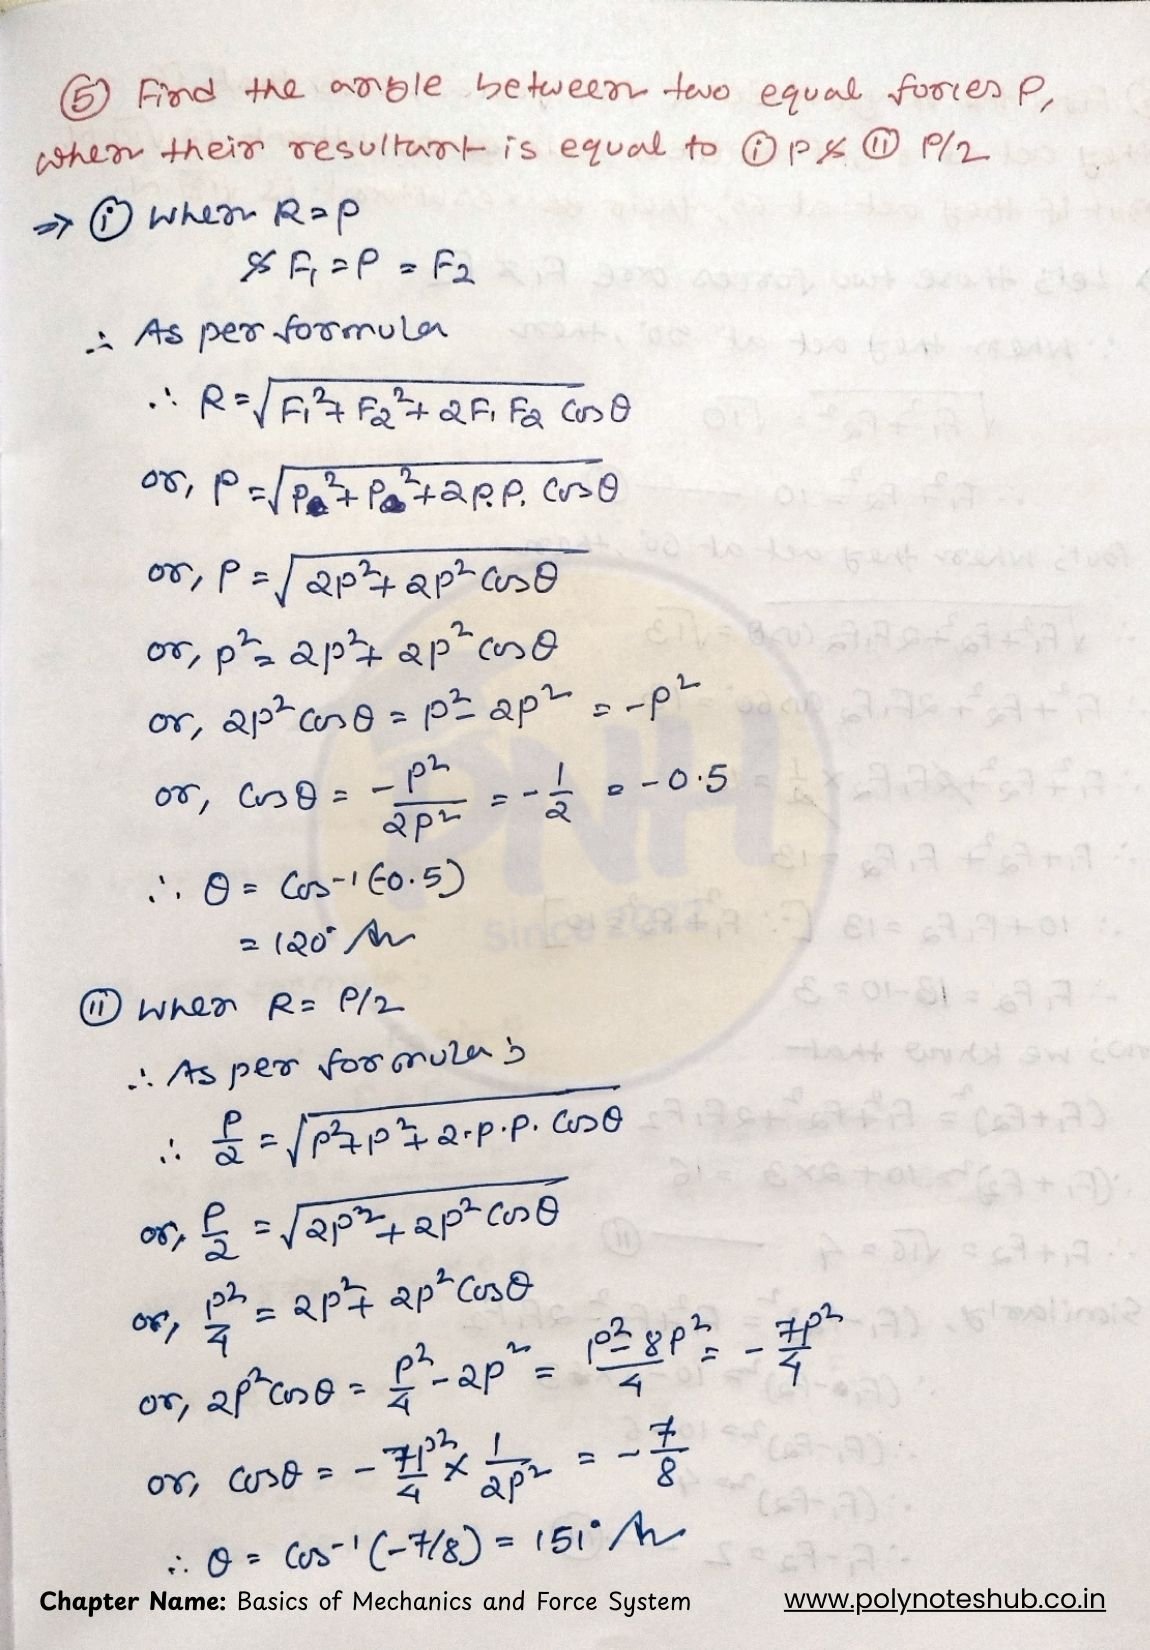 ⑤ Find the angle between two equal forces P,
when their resultant is equal to ⓘ P & ⅱ P/2
⇒ ⓘ when R = P
& F₁ = P = F₂
∴ As per formula
∴ R = √(F₁² + F₂² + 2F₁ F₂ cosθ)
or, P = √(P² + P² + 2P.P. cosθ)
or, P = √(2P² + 2P² cosθ)
or, P² = 2P² + 2P² cosθ
or, 2P² cosθ = P² - 2P² = -P²
or, cosθ = -P²/2P² = -1/2 = -0.5
∴ θ = cos⁻¹(-0.5)
= 120° Ans
ⅱ when R = P/2
∴ As per formula,
∴ P/2 = √(P² + P² + 2.P.P. cosθ)
or, P/2 = √(2P² + 2P² cosθ)
or, P²/4 = 2P² + 2P² cosθ
or, 2P² cosθ = P²/4 - 2P² = (P² - 8P²)/4 = -7P²/4
or, cosθ = -7P²/4 × 1/2P² = -7/8
∴ θ = cos⁻¹(-7/8) = 151° Ans
PNH
Chapter Name: Basics of Mechanics and Force System www.polynoteshub.co.in